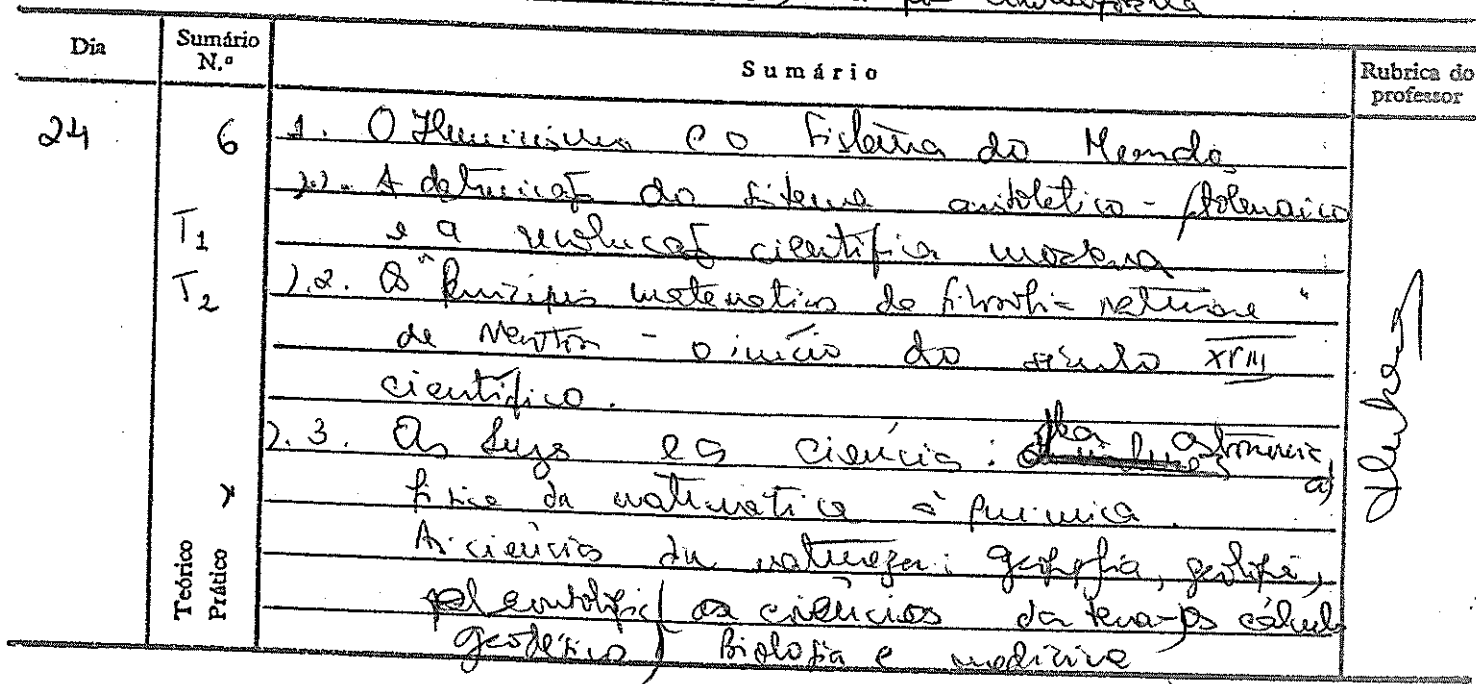 Dia
Sumário N.º
Sumário
Rubrica do professor
24
6
1. O Iluminismo e o Sistema do Mundo
1.1. A destruição do sistema aristotélico-ptolemaico
T1
e a revolução científica moderna
T2
1.2. Os "Princípios matemáticos de filosofia natural"
de Newton - o início do século XVIII
científico.
1.3. As Luzes e as ciências: da astronomia à
física da matemática à química.
As ciências da natureza: geografia, geologia,
paleontologia (as ciências da terra - os cálculos
geodésicos) Biologia e medicina
Teórico
Prático